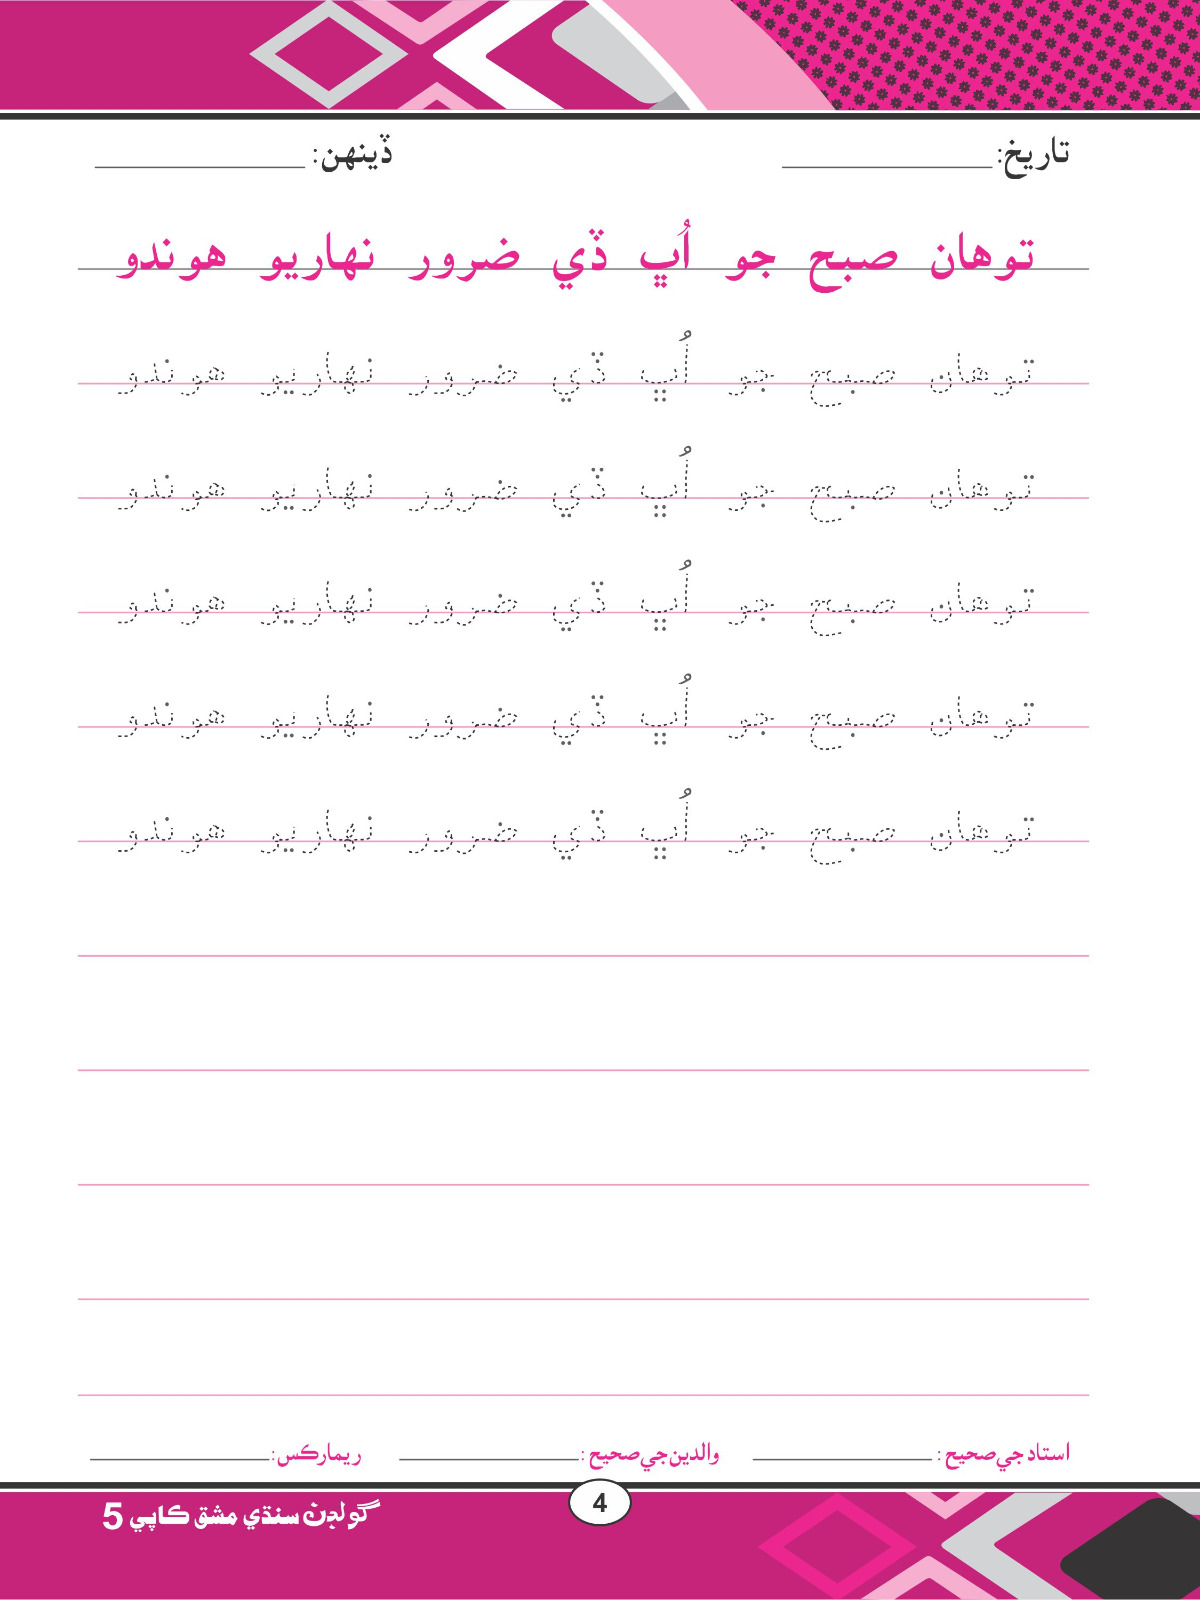 تاريخ: ڏينهن:
توهان صبح جو اُڀ ڏي ضرور نهاريو هوندو
توهان صبح جو اُڀ ڏي ضرور نهاريو هوندو
توهان صبح جو اُڀ ڏي ضرور نهاريو هوندو
توهان صبح جو اُڀ ڏي ضرور نهاريو هوندو
توهان صبح جو اُڀ ڏي ضرور نهاريو هوندو
توهان صبح جو اُڀ ڏي ضرور نهاريو هوندو
استاد جي صحيح : والدين جي صحيح : ريمارڪس:
4
گولڊن سنڌي مشق ڪاپي 5